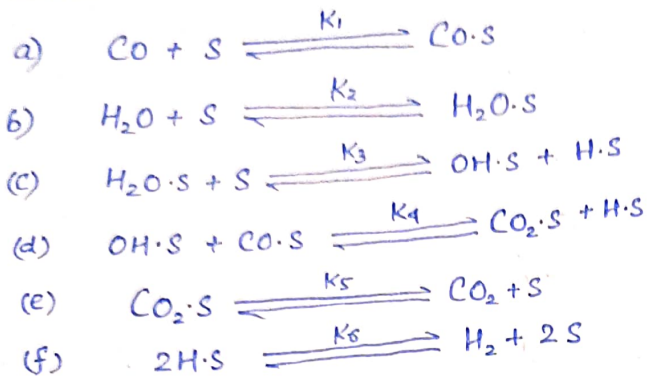 a) CO + S ⇌ K₁ CO·S
b) H₂O + S ⇌ K₂ H₂O·S
(c) H₂O·S + S ⇌ K₃ OH·S + H·S
(d) OH·S + CO·S ⇌ K₄ CO₂·S + H·S
(e) CO₂·S ⇌ K₅ CO₂ + S
(f) 2H·S ⇌ K₆ H₂ + 2S